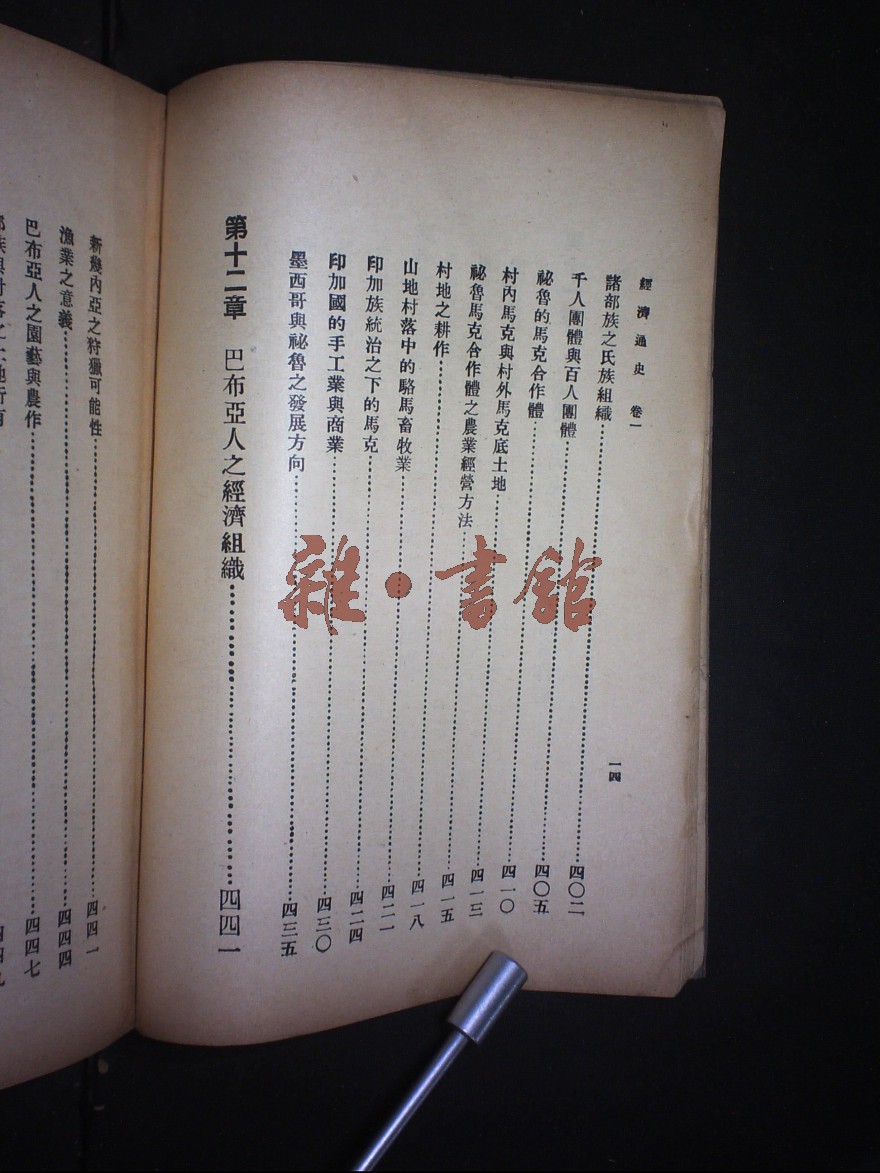 經濟通史 卷一
一四
諸部族之氏族組織……四〇二
千人團體與百人團體……四〇五
祕魯的馬克合作體……四一〇
村內馬克與村外馬克底土地……四一三
祕魯馬克合作體之農業經營方法……四一五
村地之耕作……四一八
山地村落中的駱馬畜牧業……四二一
印加族統治之下的馬克……四二四
印加國的手工業與商業……四三〇
墨西哥與祕魯之發展方向……四三五
第十二章 巴布亞人之經濟組織……四四一
新幾內亞之狩獵可能性……四四一
漁業之意義……四四四
巴布亞人之園藝與農作……四四七
雜·書館